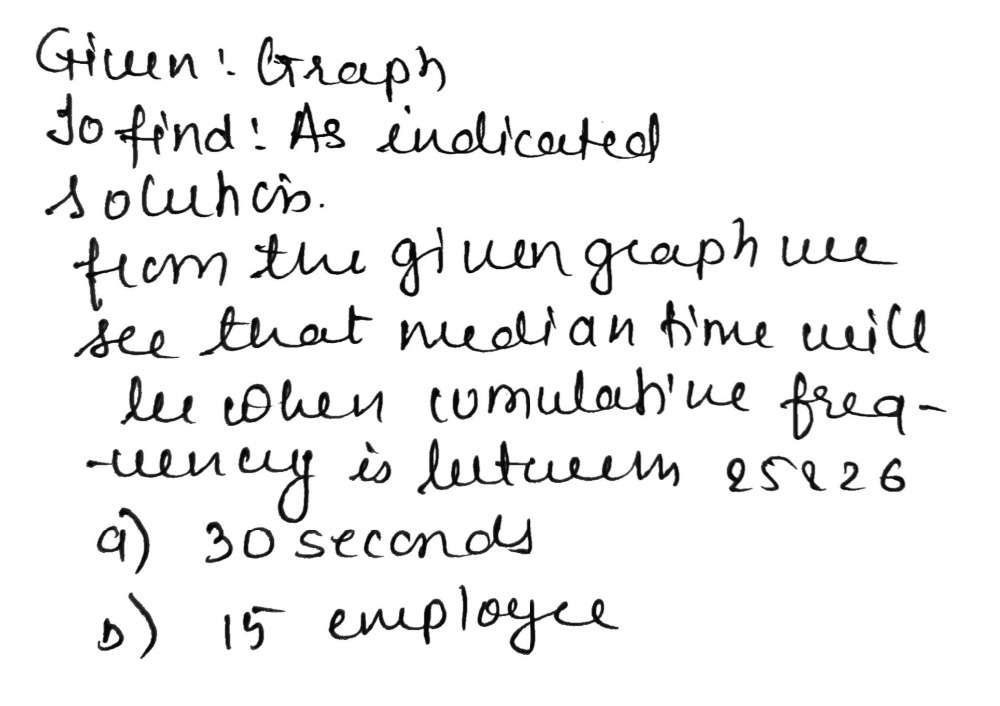 Given: Graph
To find: As indicated
Solution.
from the given graph we
see that median time will
be when cumulative freq-
-uency is between 25 & 26
a) 30 seconds
b) 15 employee